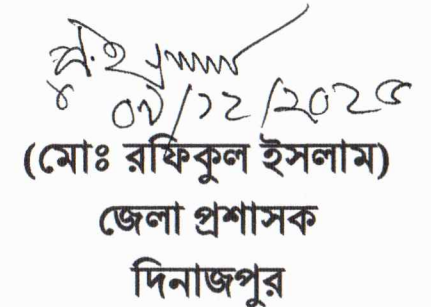 ০৭/১২/২০২৫
(মোঃ রফিকুল ইসলাম)
জেলা প্রশাসক
দিনাজপুর